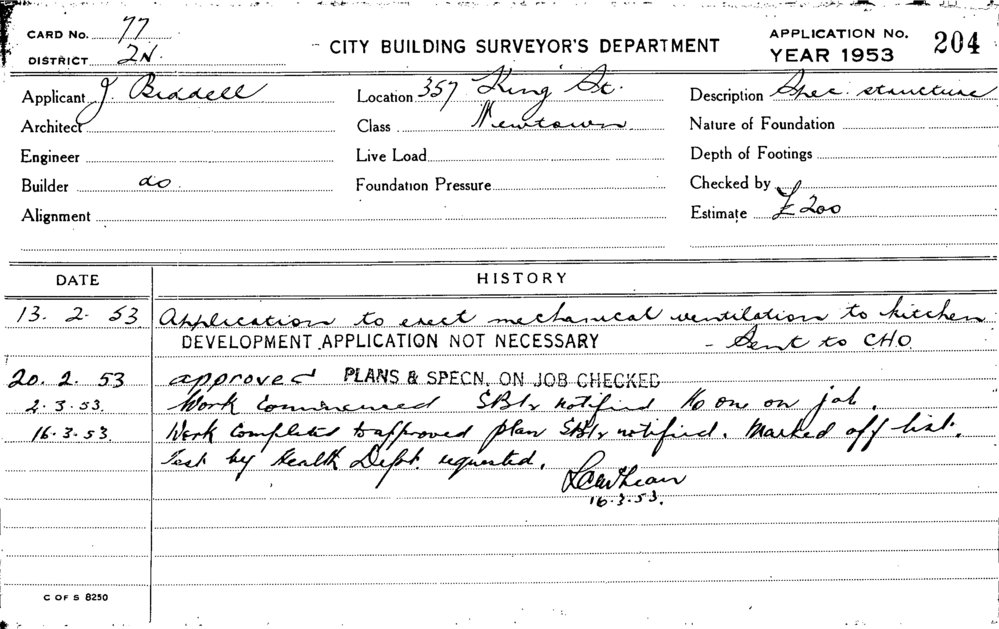 CARD No. 77
DISTRICT 2N.
CITY BUILDING SURVEYOR'S DEPARTMENT
APPLICATION No. 204
YEAR 1953
Applicant J. Biddell
Location 357 King St.
Description Spec. structure
Architect
Class Newtown
Nature of Foundation
Engineer
Live Load
Depth of Footings
Builder do
Foundation Pressure
Checked by
Alignment
Estimate £200
DATE HISTORY
13. 2. 53 Application to erect mechanical ventilation to kitchen
DEVELOPMENT APPLICATION NOT NECESSARY - Sent to CHO
20. 2. 53 approved PLANS & SPECN. ON JOB CHECKED
2.3.53. Work commenced notified No one on job.
16.3.53. Work completed to approved plan notified. Marked off list.
Test by Health Dept. requested.
16.3.53.
C OF S 8250